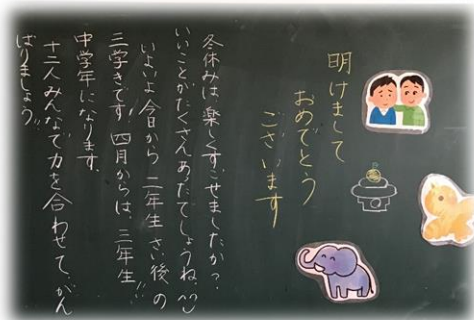 明けまして
おめでとう
ございます
冬休みは、楽しくすごせましたか？
いいことがたくさんあったでしょうね。^^
いよいよ今日から二年生さい後の
三学きです。四月からは、三年生!!
中学年になります。
十二人みんなで力を合わせて、がん
ばりましょう!!